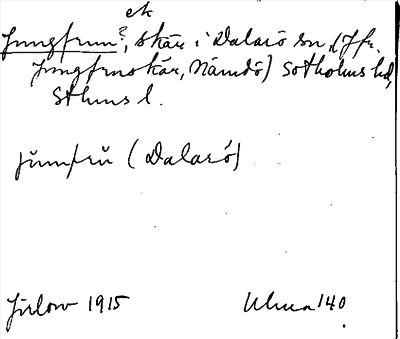 ek
Jungfrun?, skär i Dalarö sn, (Jfr.
Jungfruskär, Nämdö) Sotholms hd,
Sthms l.
jŭmfrŭ (Dalarö)
Jirlow 1915 Ulma 140